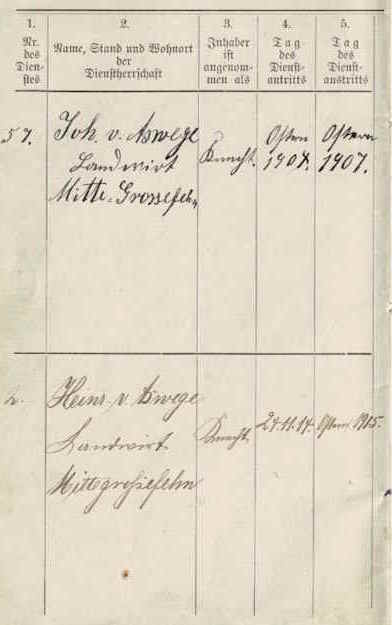 1.
Nr.
des
Dien-
stes
2.
Name, Stand und Wohnort
der
Dienstherrschaft
3.
Inhaber
ist
angenom-
men als
4.
Tag
des
Dienst-
antritts
5.
Tag
des
Dienst-
austritts
57.
Joh. v. Aswege
Landwirt
Mitte-Grossefehn
Knecht.
Ostern
Ostern
1907.
2.
Heinr. v. Aswege
Landwirt
Mittegroßefehn
Knecht.
Ostern 1915.